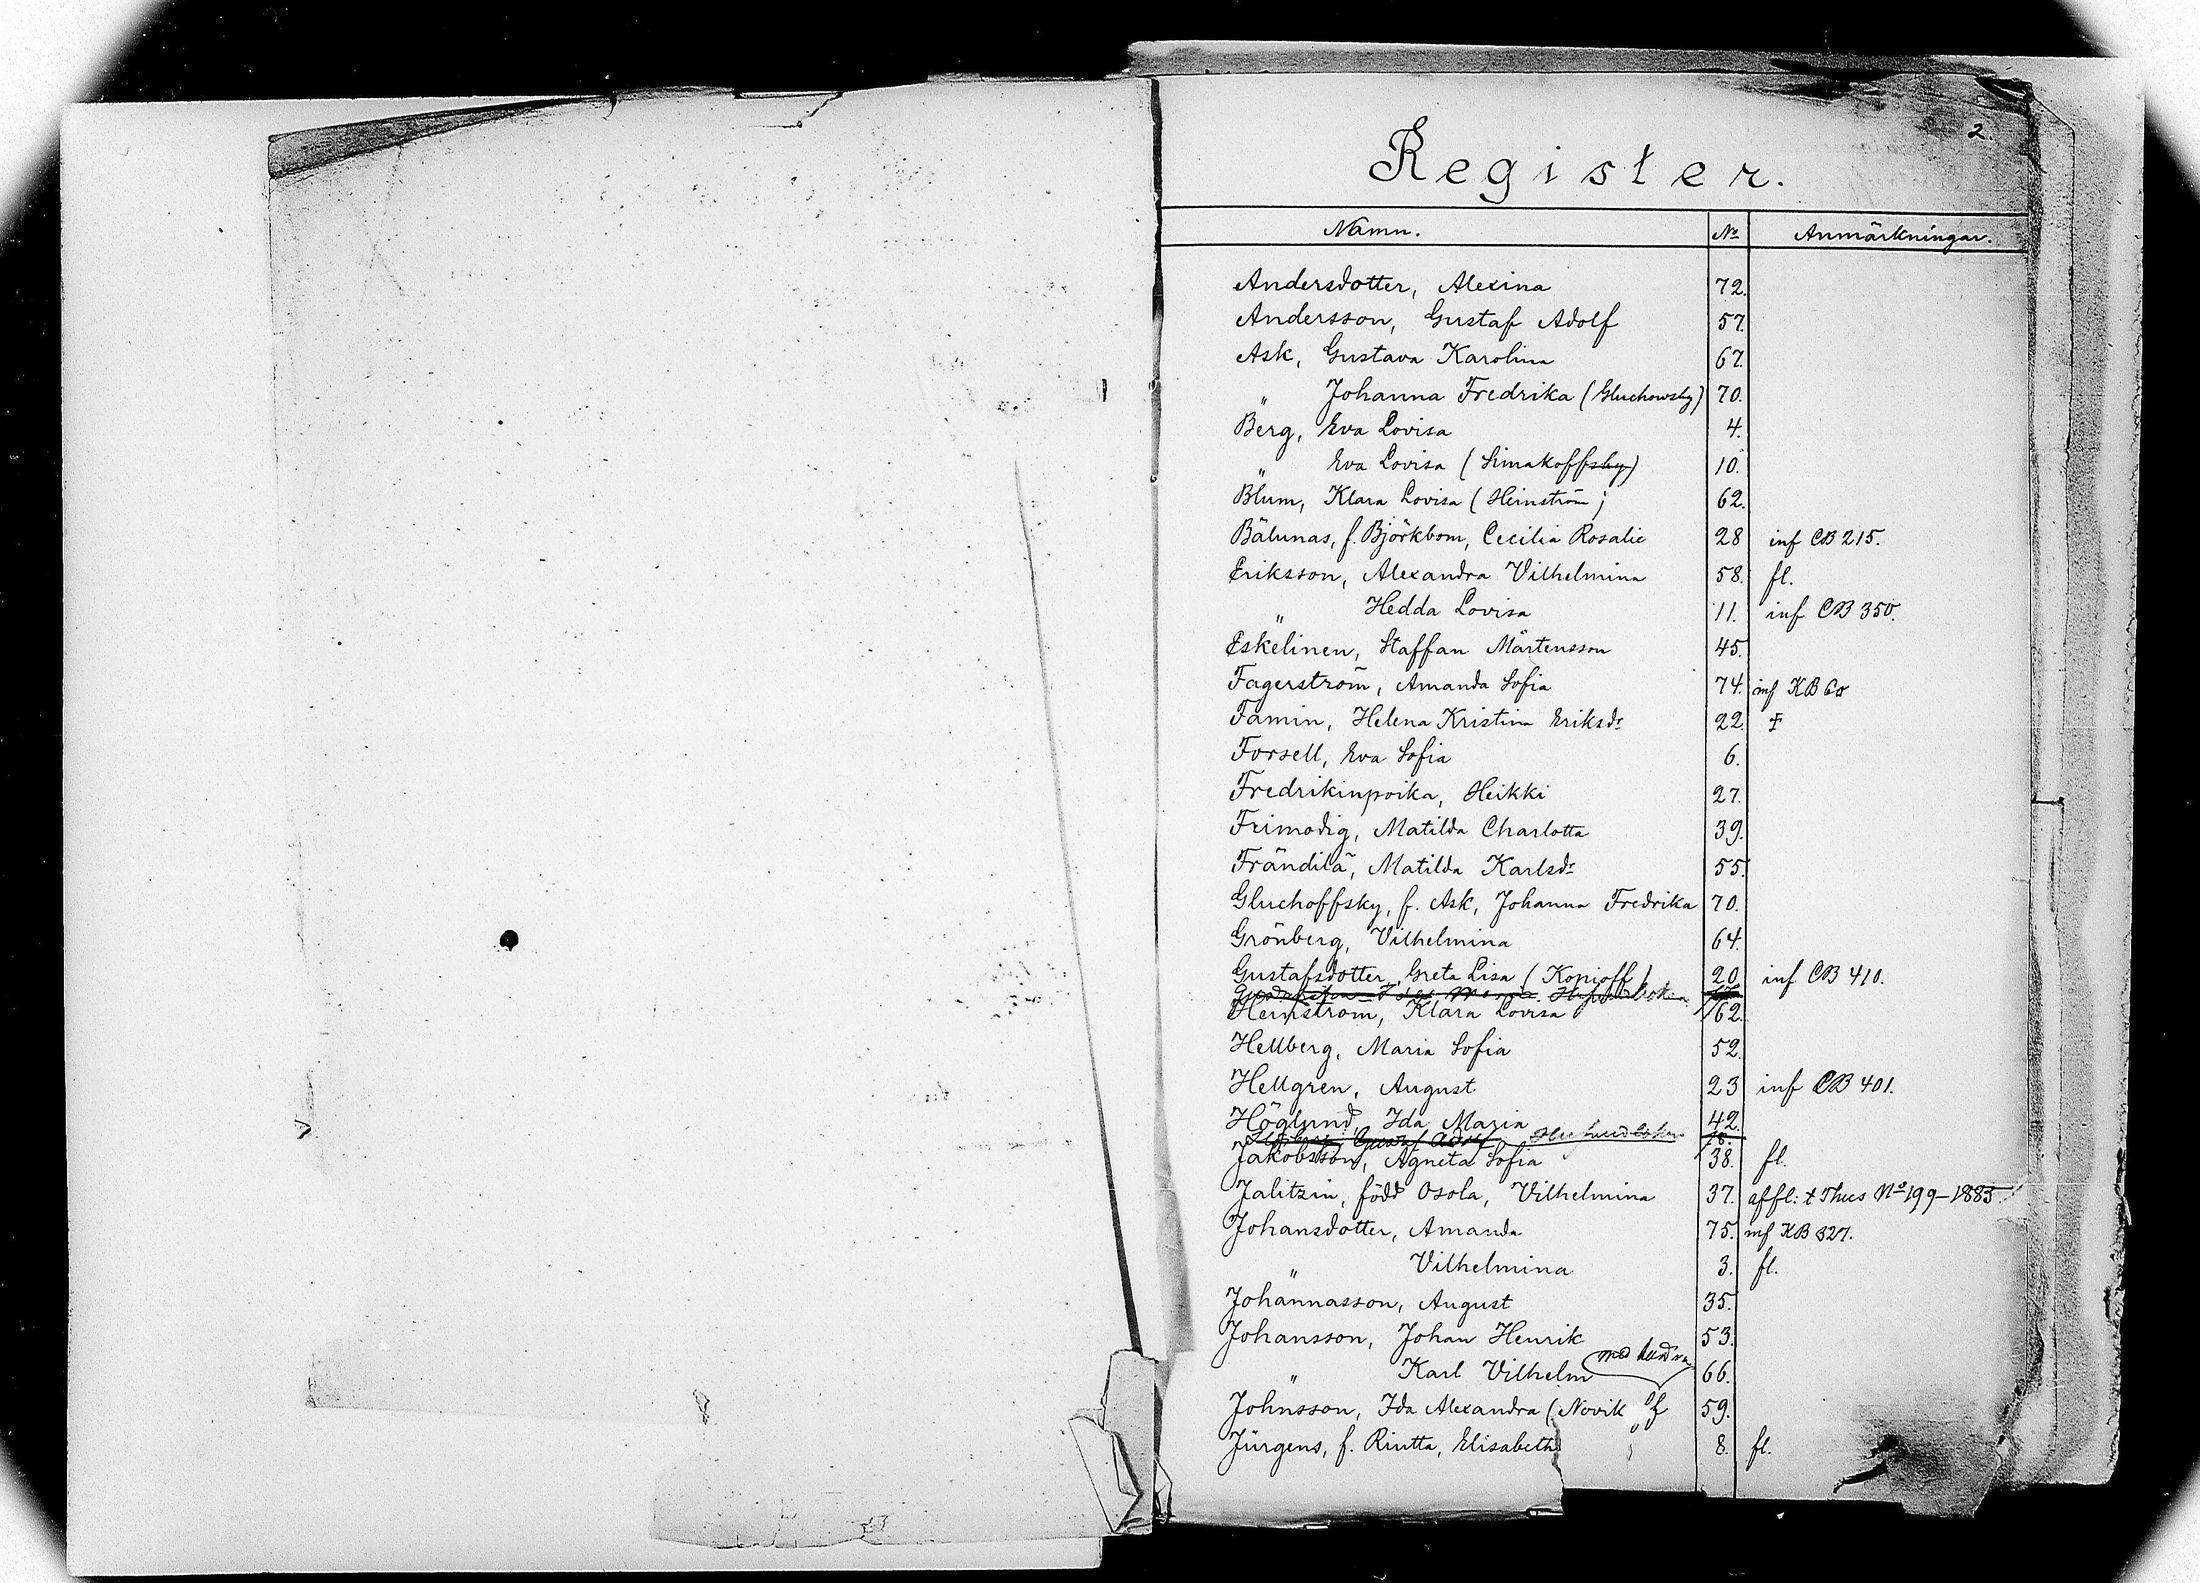 2.
Register.
Namn. No Anmärkningar.
Andersdotter, Alexina 72.
Andersson, Gustaf Adolf 57.
Ask, Gustava Karolina 67.
„ Johanna Fredrika (Gluchowsky) 70.
Berg, Eva Lovisa 4.
„ Eva Lovisa (Simakoffsky) 10.
Blum, Klara Lovisa (Heinström) 62.
Bälunas, f. Björkbom, Cecilia Rosalie 28 inf CB 215.
Eriksson, Alexandra Vilhelmina 58. fl.
„ Hedda Lovisa 11. inf CB 350.
Eskelinen, Staffan Mårtensson 45.
Fagerström, Amanda Sofia 74. inf KB 60
Famin, Helena Kristina Eriksdr 22. ‡
Forsell, Eva Sofia 6.
Fredrikinpoika, Heikki 27.
Frimodig, Matilda Charlotta 39.
Frändilä, Matilda Karlsdr 55.
Gluchoffsky, f. Ask, Johanna Fredrika 70.
Grönberg, Vilhelmina 64.
Gustafsdotter, Greta Lisa (Kopjoff) 20. inf CB 410.
Heinström, Klara Lovisa 62.
Hellberg, Maria Sofia 52.
Hellgren, August 23 inf CB 401.
Höglund, Ida Maria 42.
Gustaf Adolf
Jakobsson, Agneta Sofia 38. fl.
Jalitzin, född Osola, Vilhelmina 37. affl: t Thus No 199–1883
Johansdotter, Amanda 75. inf KB 327.
„ Vilhelmina 3. fl.
Johannasson, August 35.
Johansson, Johan Henrik 53.
„ Karl Vilhelm 66.
Johnsson, Ida Alexandra (Novik 59.
Jürgens, f. Riutta, Elisabeth 8. fl.